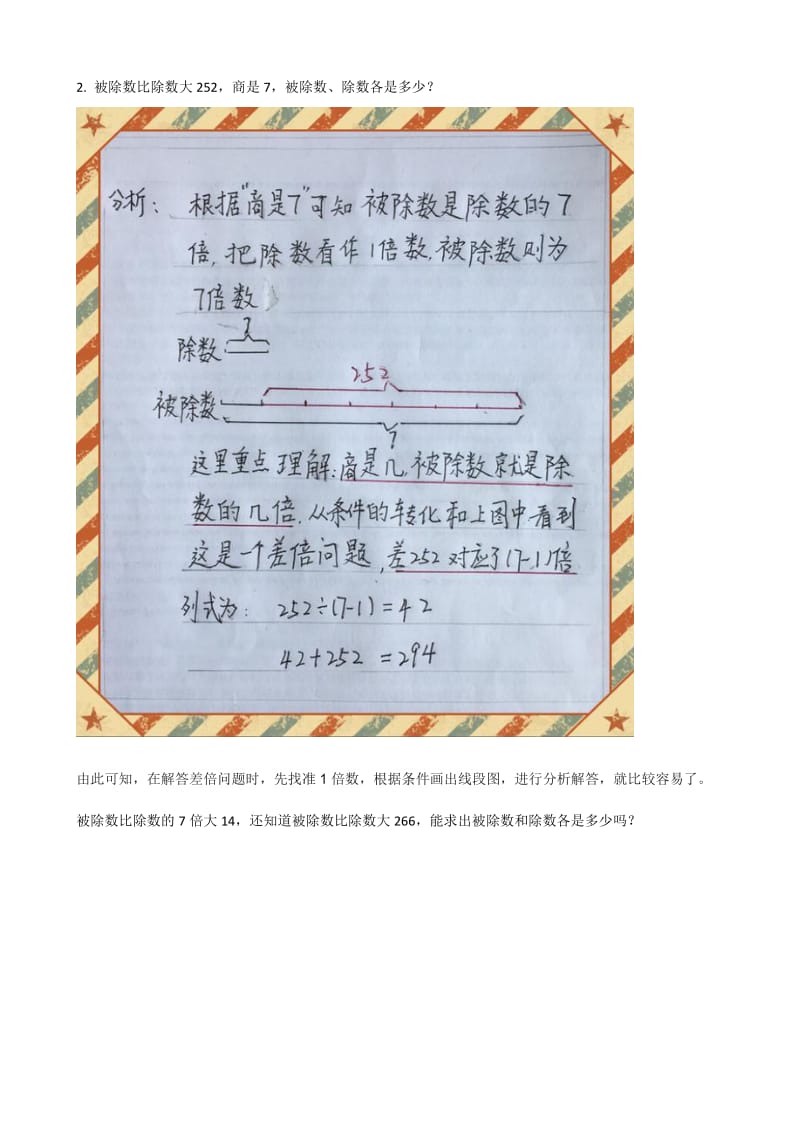 2. 被除数比除数大 252，商是 7，被除数、除数各是多少？
分析： 根据"商是7"可知 被除数是除数的7
倍，把除数看作1倍数，被除数则为
7倍数
?
除数
252
被除数
?
这里重点理解：商是几，被除数就是除
数的几倍．从条件的转化和上图中看到
这是一个差倍问题，差252对应了(7-1)倍
列式为： 252÷(7-1)=42
42+252=294
由此可知，在解答差倍问题时，先找准 1 倍数，根据条件画出线段图，进行分析解答，就比较容易了。
被除数比除数的 7 倍大 14，还知道被除数比除数大 266，能求出被除数和除数各是多少吗？